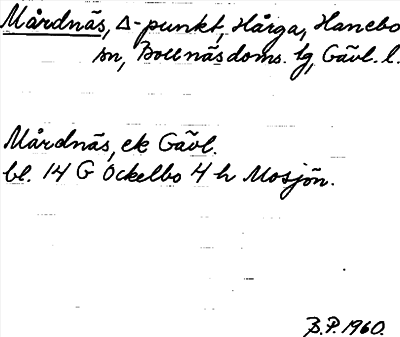 Mårdnäs, Δ-punkt, Hårga, Hanebo
sn, Bollnäs doms. lg, Gävl. l.
Mårdnäs, ek Gävl.
bl. 14 G Ockelbo 4 h Mosjön.
B.P. 1960.